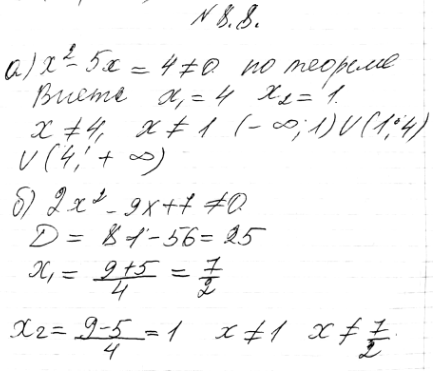 № 8.8.
а) x² - 5x = 4 ≠ 0 по теореме
Виета x₁ = 4 x₂ = 1.
x ≠ 4, x ≠ 1 (-∞; 1) ∪ (1; 4)
∪ (4; +∞)
б) 2x² - 9x + 7 ≠ 0
D = 81 - 56 = 25
x₁ = (9+5)/4 = 7/2
x₂ = (9-5)/4 = 1 x ≠ 1 x ≠ 7/2.